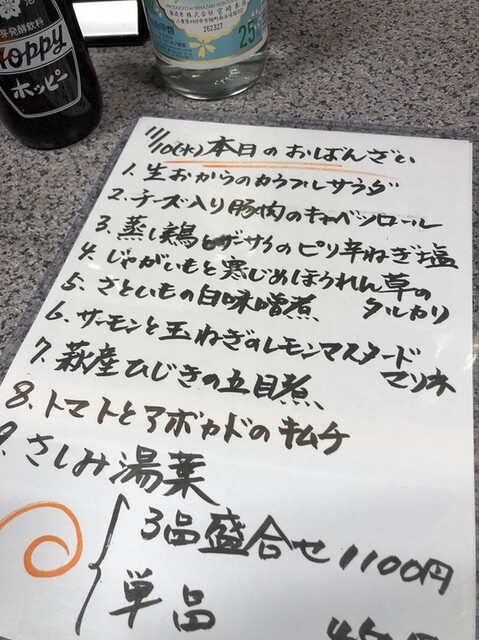 Hoppy
ホッピー
PRODUCED BY MIYAZAKI HONTEN
株式会社 宮崎本店
262327
25
11/10(水)本日のおばんざい
1. 生おからのカラフルサラダ
2. チーズ入り豚肉のキャベツロール
3. 蒸し鶏とザーサイのピリ辛ねぎ塩
4. じゃがいもと寒じめほうれん草の
タルカリ
5. さといもの白味噌煮
6. サーモンと玉ねぎのレモンマスタード
マリネ
7. 萩産ひじきの五目煮
8. トマトとアボカドのキムチ
9. さしみ湯葉
3品盛合せ1100円
単品